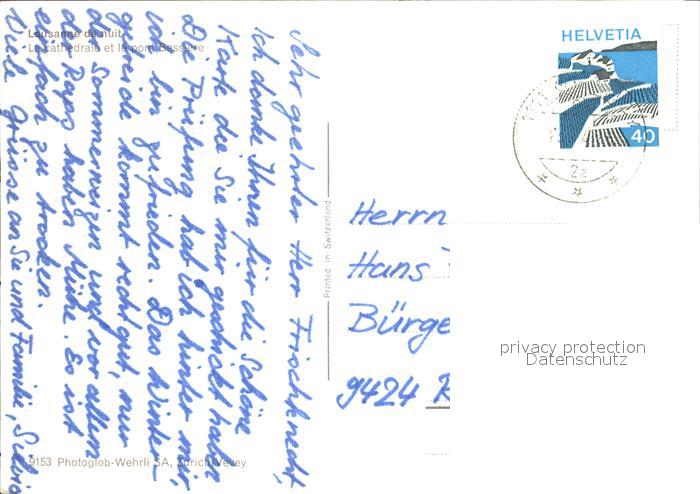 Lausanne de nuit
La cathédrale et le pont Bessière
Sehr geehrter Herr Frischknecht,
Ich danke Ihnen für die schöne
Karte die Sie mir geschickt haben
Die Prüfung hab ich hinter mir,
ich bin zufrieden. Das Winter-
getreide kommt recht gut, nur
der Sommerweizen und vor allem
der Raps haben Mühe. Es ist
einfach zu trocken.
Viele Grüsse an Sie und Familie, Silvio
9153 Photoglob-Wehrli SA, Zürich/Vevey
Printed in Switzerland
HELVETIA
40
2a
Herrn
Hans
Bürge
9424
privacy protection
Datenschutz